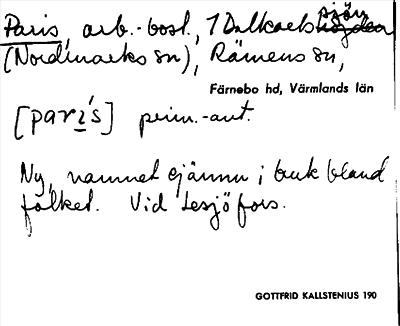 Paris, arb.-bost., 1 Dalkarlssjön
(Nordmarks sn), Rämens sn,
Färnebo hd, Värmlands län
[parís] prim.-ant.
Ny, namnet ejännu i bruk bland
folket. Vid Lesjöfors.
GOTTFRID KALLSTENIUS 190